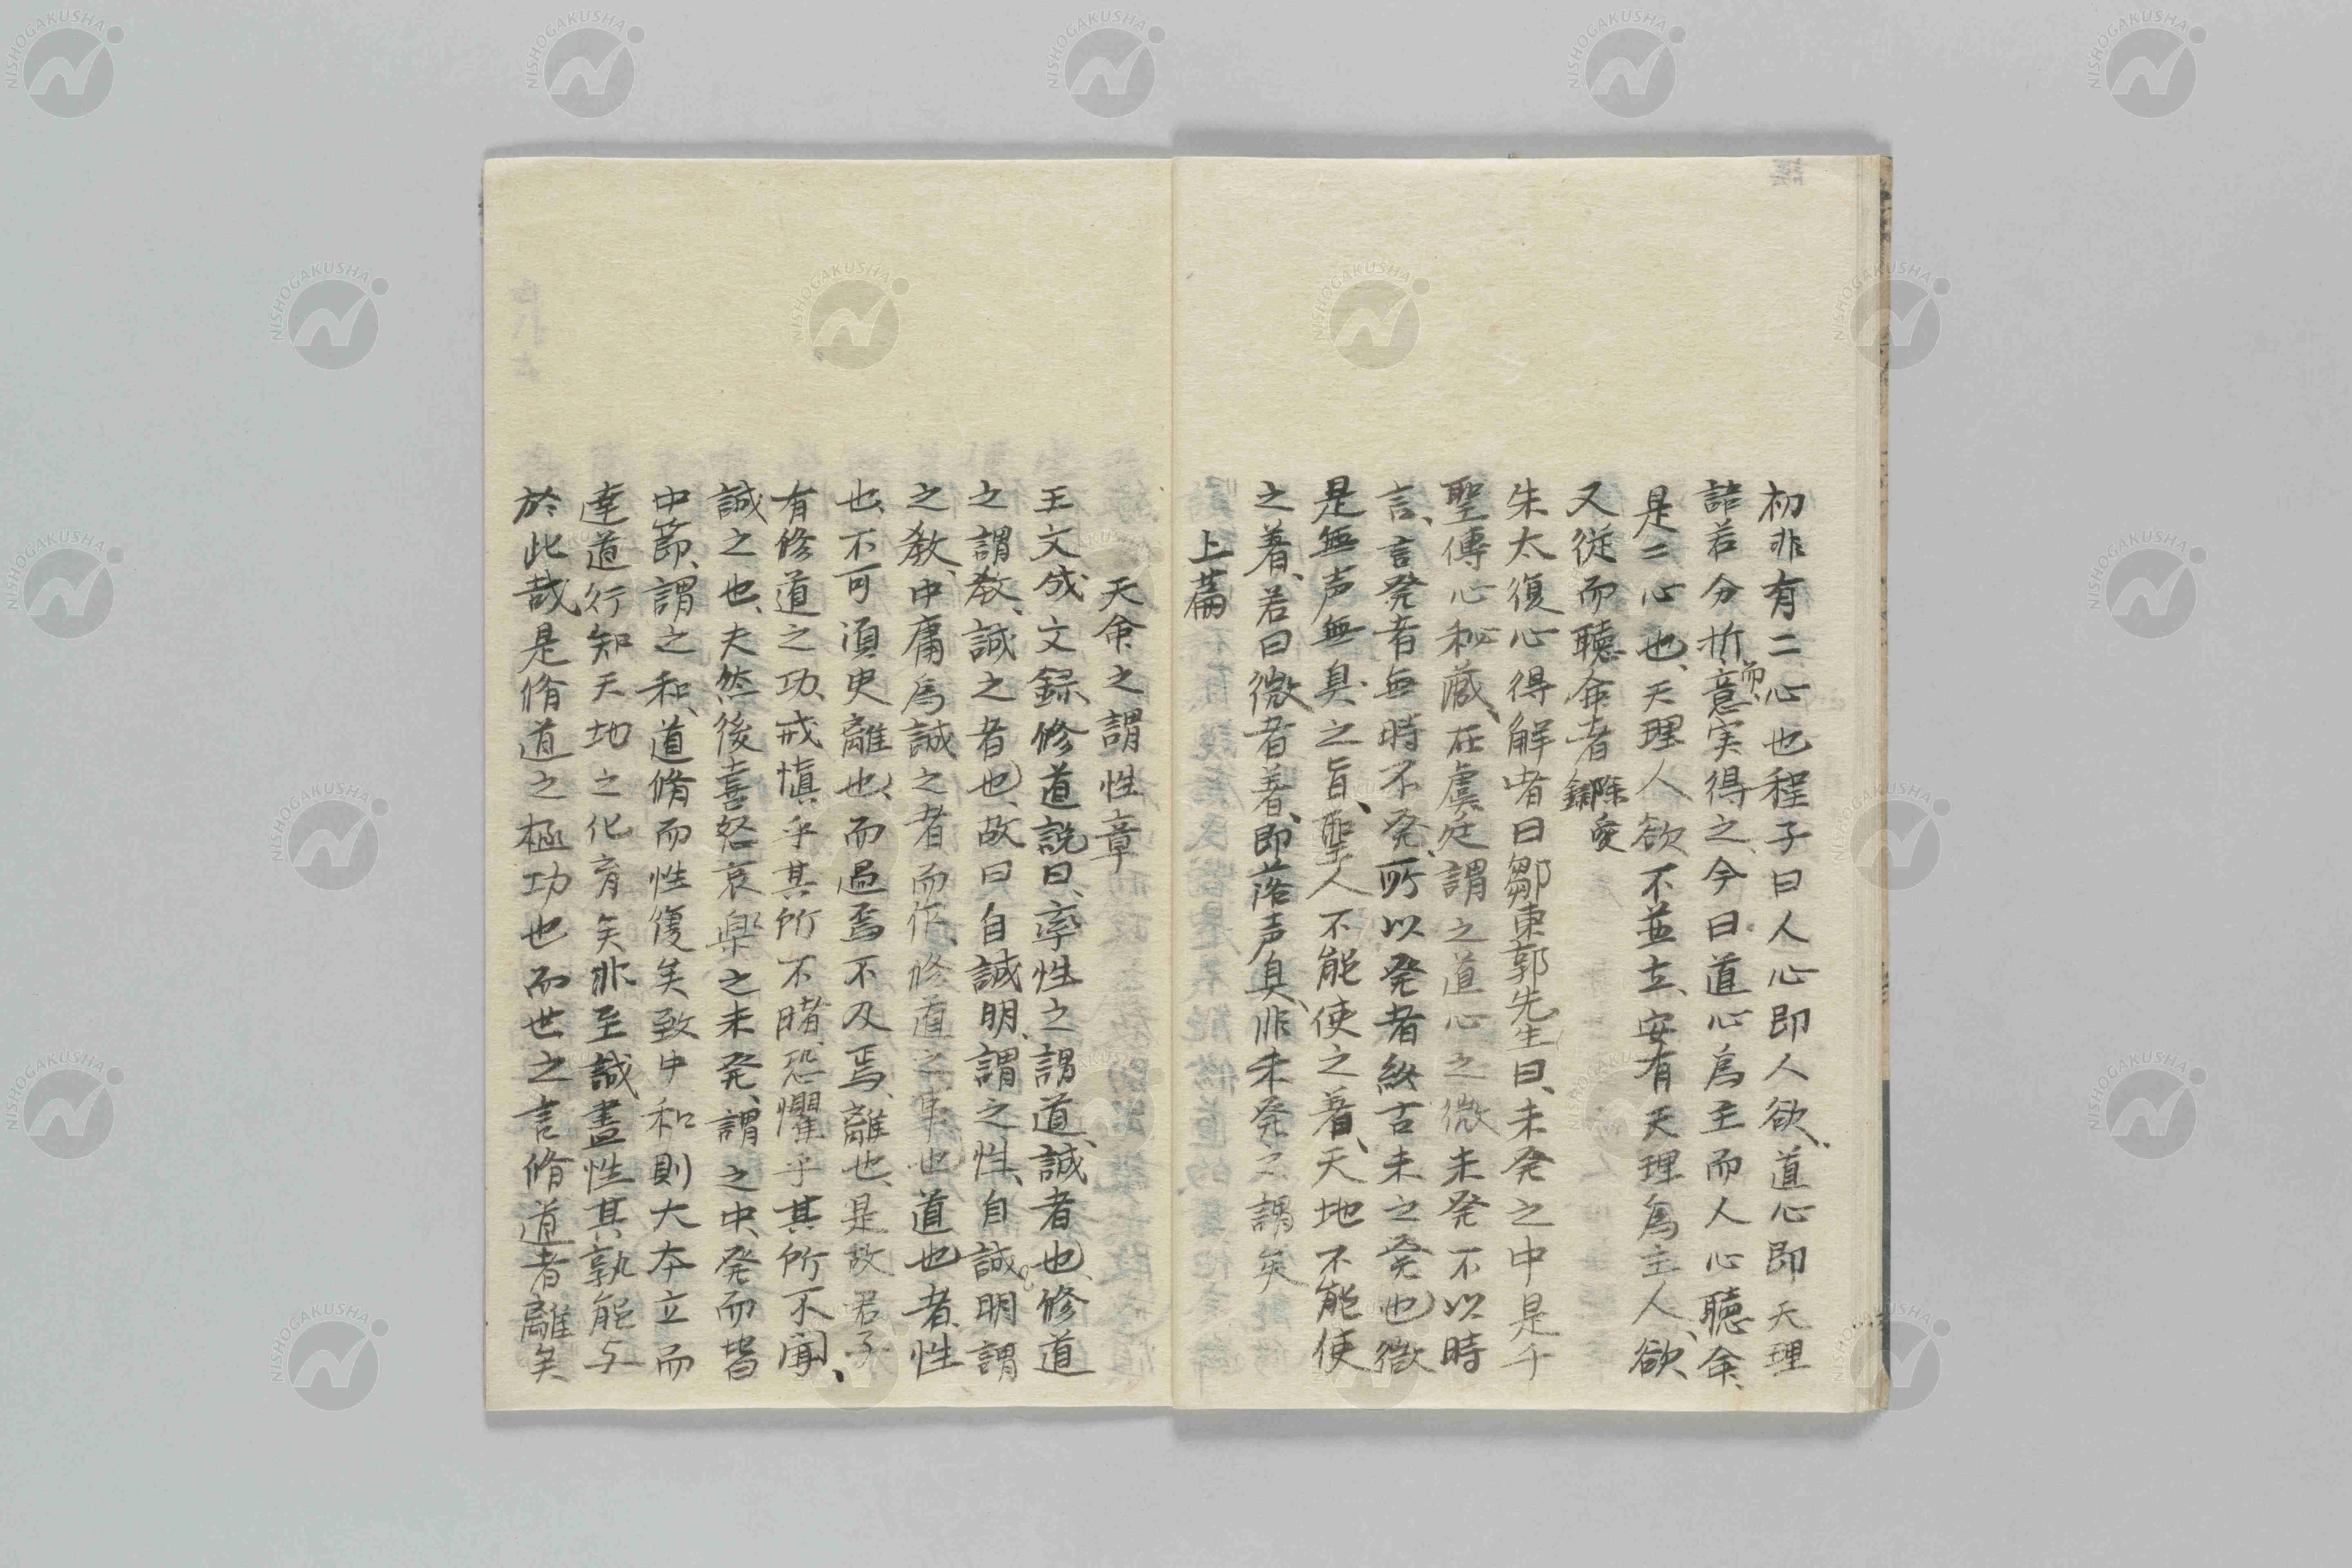 初非有二心也程子曰人心即人欲道心即天理
語若分析而意実得之今曰道心為主而人心聴命
是二心也天理人欲不並立安有天理為主人欲
又従而聴命者 除愛
朱太復心得解者曰鄒東郭先生曰未発之中是千
聖傳心秘蔵在虞廷謂之道心之微未発不以時
言言発者無時不発所以発者終古未之発也微
是無声無臭之旨聖人不能使之着天地不能使
之着若曰微者着即落声臭非未発之謂矣
上篇
天命之謂性章
王文成文録修道説曰率性之謂道誠者也修道
之謂教誠之者也故曰自誠明謂之性自誠明謂
之教中庸為誠之者而作修道之事也道也者性
也不可須臾離也而過焉不及焉離也是故君子
有修道之功戒慎乎其所不睹恐懼乎其所不聞
誠之也夫然後喜怒哀楽之未発謂之中発而皆
中節謂之和道脩而性復矣致中和則大本立而
達道行知天地之化育矣非至誠盡性其孰能与
於此哉是脩道之極功也而世之言脩道者離矣
NISHOGAKUSHA